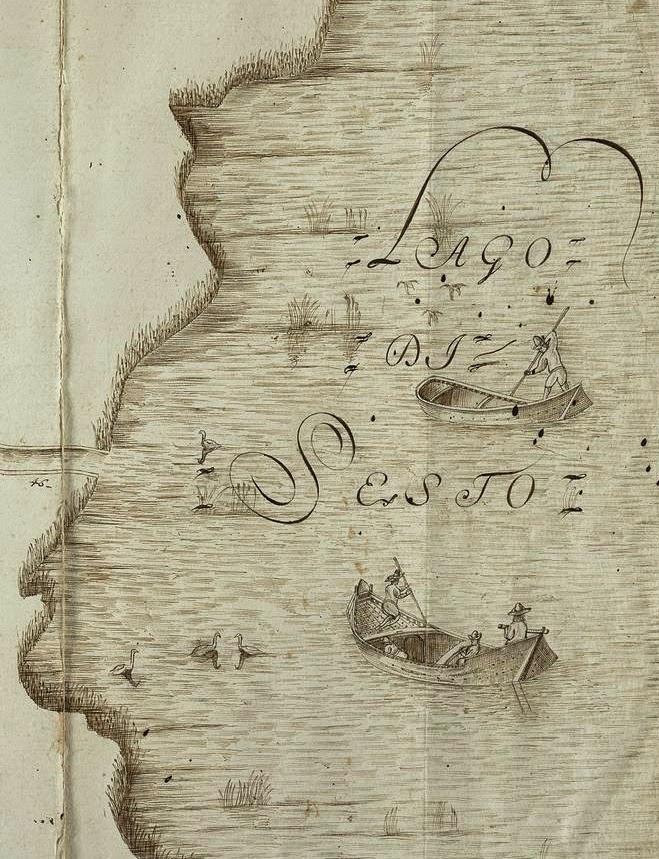 LAGO
DI
SESTO